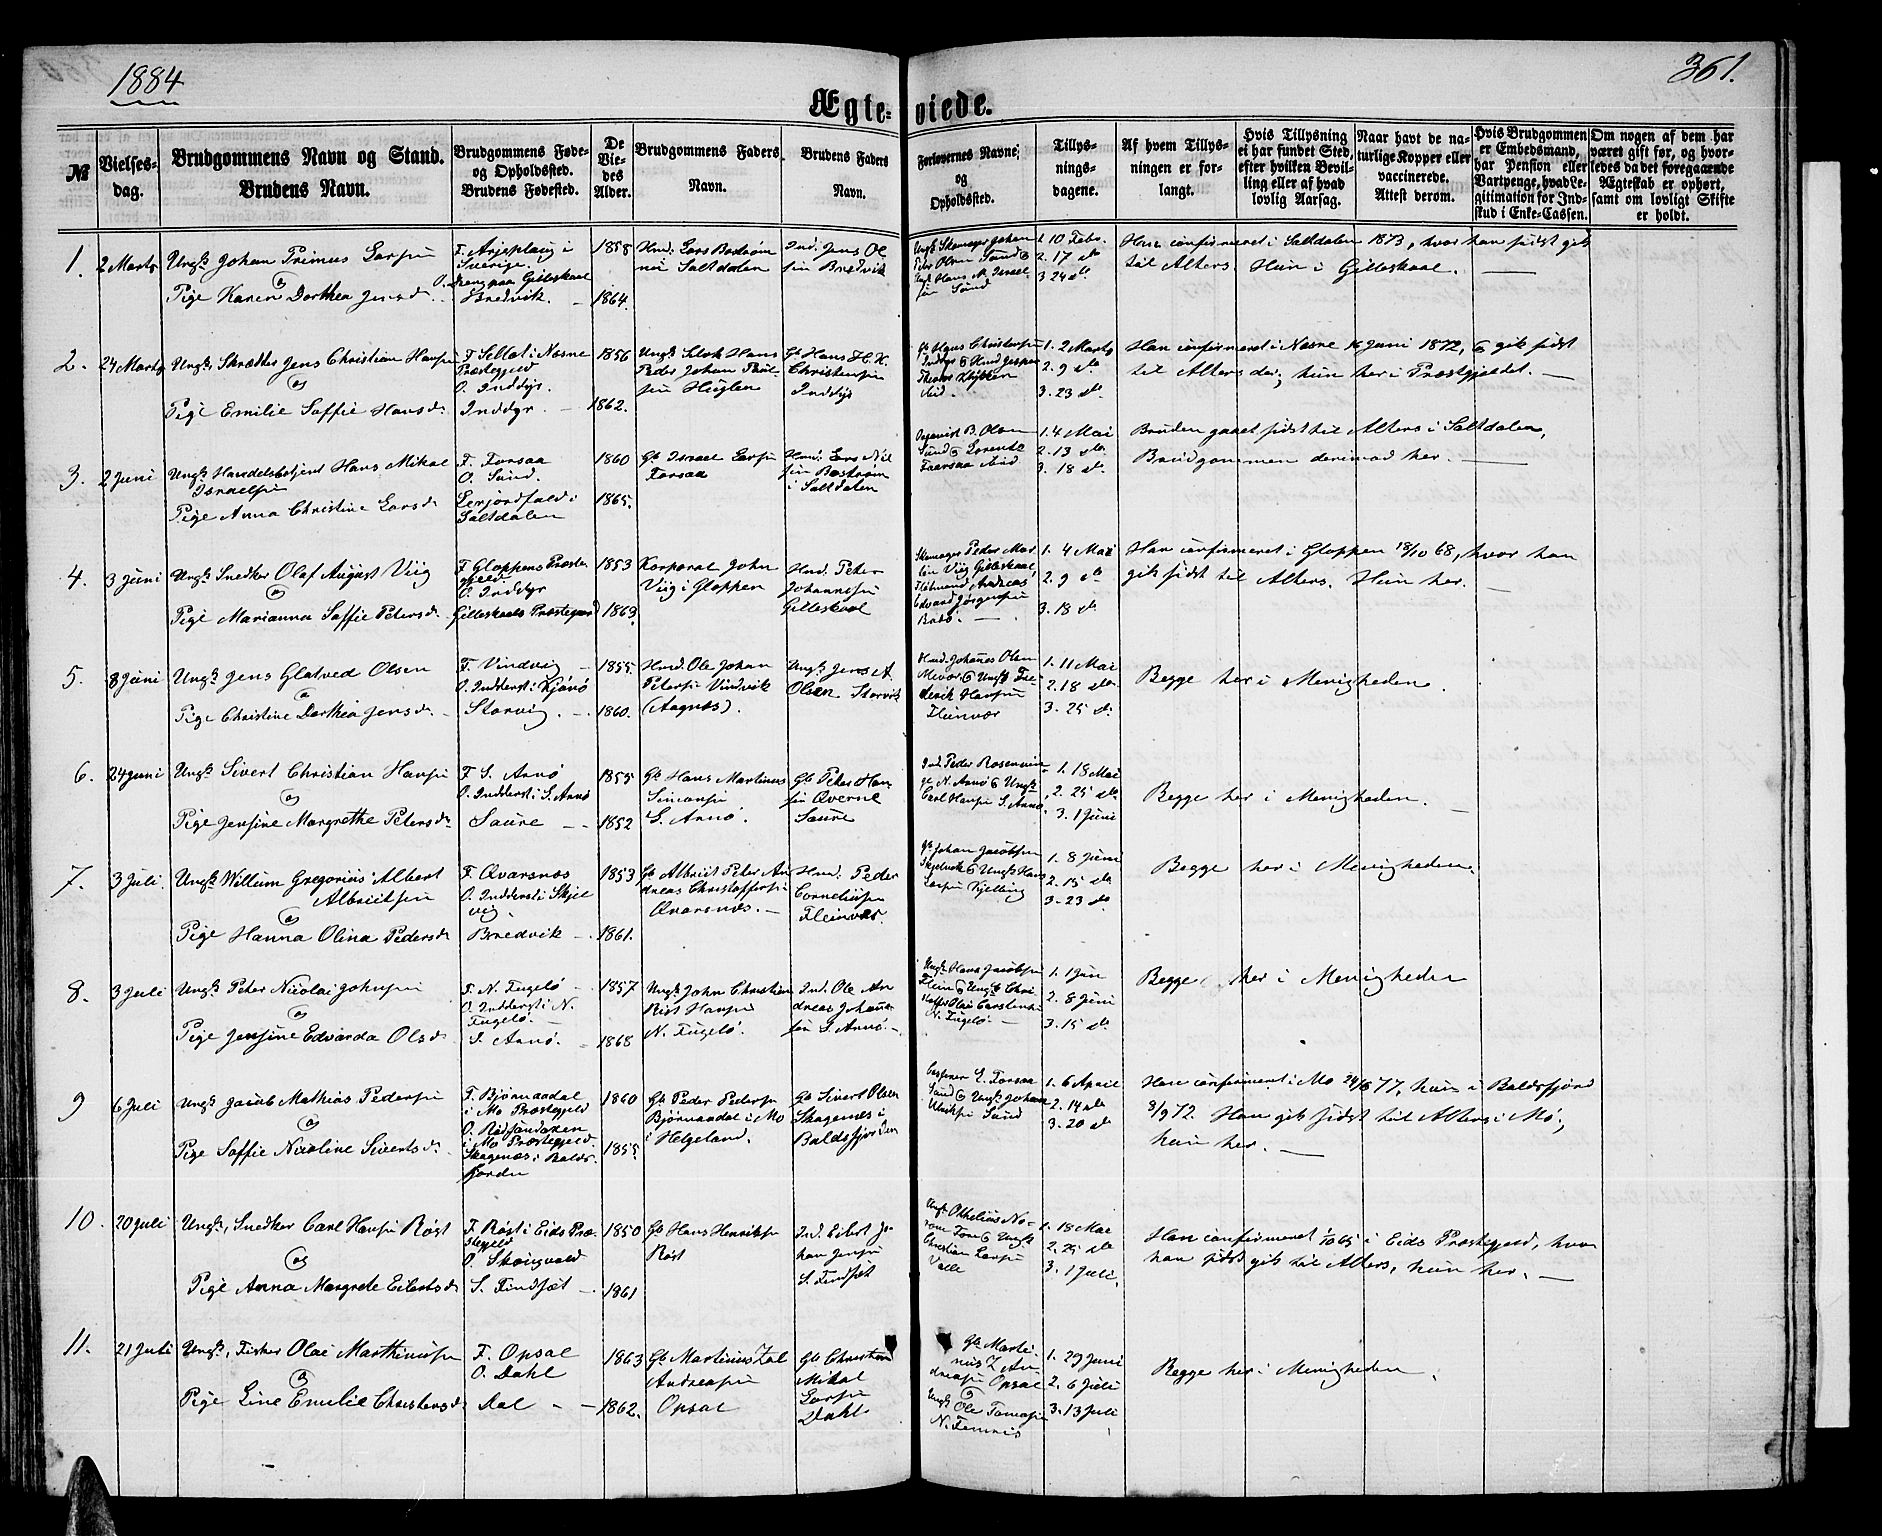 1884
361.
Ægteviede.
№
Vielsesdag.
Brudgommens Navn og Stand.
Brudens Navn.
Brudgommens Føde-
og Opholdssted.
Brudens Fødested.
De
Vie-
des
Alder.
Brudgommens Faders
Navn.
Brudens Faders
Navn.
Forlovernes Navne,
og
Opholdssted.
Tillys-
nings-
dagene.
Af hvem Tillys-
ningen er for-
langt.
Hvis Tillysning
ei har fundet Sted,
efter hvilken Bevil-
ling eller af hvad
lovlig Aarsag.
Naar havt de na-
turlige Kopper eller
vaccinerede.
Attest derom.
Hvis Brudgommen
er Embedsmand,
har Pension eller
Vartpenge, hvad Le-
gitimation for Ind-
skud i Enke-Cassen.
Om nogen af dem har
været gift før, og hvor-
ledes da det foregaaende
Ægteskab er ophørt,
samt om lovligt Skifte
er holdt.
1.
2 Marts
Ungk. Johan Primus Larsen
og
Pige Karen Dorthea Jensd.
F. Arjeplaug i
Sverige
O. Dreng paa Gilleskaal
Bredvik.
1858
1864.
Hmd. Lars Bostrøm
Saltdalen
Ind. Jens Ol
sen Bredvik
Ungk. Skomager Johan
Peder Olsen Sund &
Ungk. Hans M. Israel-
sen Sund
1. 10 Febr.
2. 17 do
3. 24 do
Han confirmeret i Saltdalen 1873, hvor han sidst gik
til Alters. Hun i Gilleskaal.
2.
24 Marts
Ungk. Skrædder Jens Christian Hansen
og
Pige Emilie Soffie Hansd.
F. Selløt i Næsne
Præstegjeld
O. Inddyr.
Inddyr.
1856
1862.
Ungk. Hans
Peder Johan Paul-
sen Huglen
Gb. Hans H. K.
Christensen
Inddyr
Gb. Hans Christensen
Inddyr & Hmd. Jesper
ibid.
1. 2 Marts
2. 9 do
3. 23 do
Han confirmeret i Næsne 16 Juni 1872, & gik sidst
til Alters der; hun her i Præstgjeldet.
3.
2 Juni
Ungk. Handelsbetjent Hans Mikal
Israelsen
Pige Anna Christine Larsd.
F. Forsaa
O. Sund.
Lerjordfald i
Saltdalen
1860
1865.
Gb. Israel Larsen
Forsaa
Hmd. Lars Nil
sen Bostrøm
i Saltdalen
B. Olsen
Sund & Lorents
Faarsaa ibid
1. 4 Mai
2. 13 do
3. 18 do
Bruden gaaet sidst til Alters i Saltdalen,
Brudgommen derimod her.
4.
3 Juni
Ungk. Snedker Olaf August Viig
og
Pige Marianna Soffie Petersd.
F. Gloppens Præste-
gjeld
O. Inddyr
Gilleskaals Præstegaard
1853
1863.
Korporal John
Viig i Gloppen
Hmd. Peter
Johannesen
Gilleskaal
Skomager Peder Mar
tin Viig Gilleskaal,
Andreas
Edvard Jørgensen
Bodø.
1. 4 Mai
2. 9 do
3. 18 do
Han confirmeret i Gloppen 18/10 68, hvor han
gik sidst til Alters. Hun her.
5.
8 Juni
Ungk. Jens Glatved Olsen
og
Pige Christine Dorthea Jensd.
F. Vindvig
O. Indderst i Kjønø
Storvig.
1855.
1860.
Hmd. Ole Johan
Petersen Vindvik
(Aagnæs).
Ungk. Jens A.
Olsen Storvik
Hmd. Johannes Olsen
Mevær & Ungk. Fre
derik Hansen
Fleinvær
1. 11 Mai
2. 18 do
3. 25 do
Begge her i Menigheden.
6.
24 Juni
Ungk. Sivert Christian Hansen
og
Pige Jensine Margrethe Petersdr
F. S. Arnø
O. Indderst i S. Arnø
Saure
1855
1852
Gb. Hans Martinus
Simonsen
S. Arnø.
Gb. Peter Han
sen Øverne
Saure
Ind. Peder Rosenvin-
ge N. Arnø & Ungk.
Carl Hansen S. Arnø
1. 18 Mai
2. 25 do
3. 1 Juni
Begge her i Menigheden.
7.
3 Juli.
Ungk. Willum Gregorius Albert
Albrictsen
og
Pige Hanna Olina Pedersd.
F. Qvarsnæs
O. Indderst i Skjel
vig.
Bredvik
1853
1861.
Gb. Albrict Peter An
dreas Christoffersen
Qvarsnæs.
Hmd. Peder
Corneliusen
Fleinvær.
Gb. Johan Jacobsen
Skjelvik & Ungk. Hans
Larsen Kjelling
1. 8 Juni
2. 15 do
3. 23 do
Begge her i Menigheden.
8.
3 Juli
Ungk. Peter Nicolai Johnsen
og
Pige Jensine Edvarda Olsd.
F. N. Fugelø
O. Indderst i N.
Fugelø.
S. Arnø.
1857
1868
Ungk. John Christian
Rist Hansen
N. Fugelø.
Ind. Ole An
dreas Johann-
sen S. Arnø.
Ungk. Hans Jacobsen
Flein & Ungk. Chri
stoffer Olai Carstens
N. Fugelø.
1. 1 Juni
2. 8 Juni
3. 15 do
Begge her i Menigheden
9
6 Juli
Ungk. Jacob Mathias Pedersen
og
Pige Soffie Nicoline Sivertsd.
F. Bjørnaadal
i Mo Præstegjeld
O. Rødsandaxen
i Mo Præstegjeld.
Skagenæs i Balds-
fjorden
1860
1855
Gb. Peder Pedersen
Bjørnaadal i Mo
i Helgeland.
Gb. Sivert Olsen
Skagenæs i
Baldsfjorden
Casper E. Forsaa
Sund & Ungk. Johan
Ulriksen Sund
1. 6 April
2. 14 do
3. 20 do
Han confirmeret i Mo 24/6 77, hun i Baldsfjord
8/9 72. Han gik sidst til Alters i Mo;
hun her.
10.
20 Juli
Ungk., Snedker Carl Hansen Røst
og
Pige Anna Margrete Eilertsd.
F. Røst i Eids Præ-
stegjeld
O. Skougvold
S. Findset
1850
1861
Gb. Hans Henriksen
Røst
Ind. Eilert Jo
han Jensen
S. Findset
Ungk. Othelius No-
rum Fore & Ungk.
Christian Larsen
Valle
1. 18 Mai
2. 25 do
3. 1 Juli.
Han confirmeret 1/10 65 i Eids Præstegjeld, hvor
han sidst gik til Alters, hun her.
11.
21 Juli
Ungk., Fisker Olai Marthinusen
og
Pige Line Emelie Christensd.
F. Opsal
O. Dahl
Dal
1863
1862.
Gb. Martinus Zal
Andreasen
Opsal
Gb. Christian
Mikal
Larsen
Dahl
Gb. Marti-
nus Z. An
dreasen Opsal
&
Ungk. Ole Tomasen
N.
1. 29 Juni
2. 6 Juli
3. 13 Juli
Begge her i Menigheden.